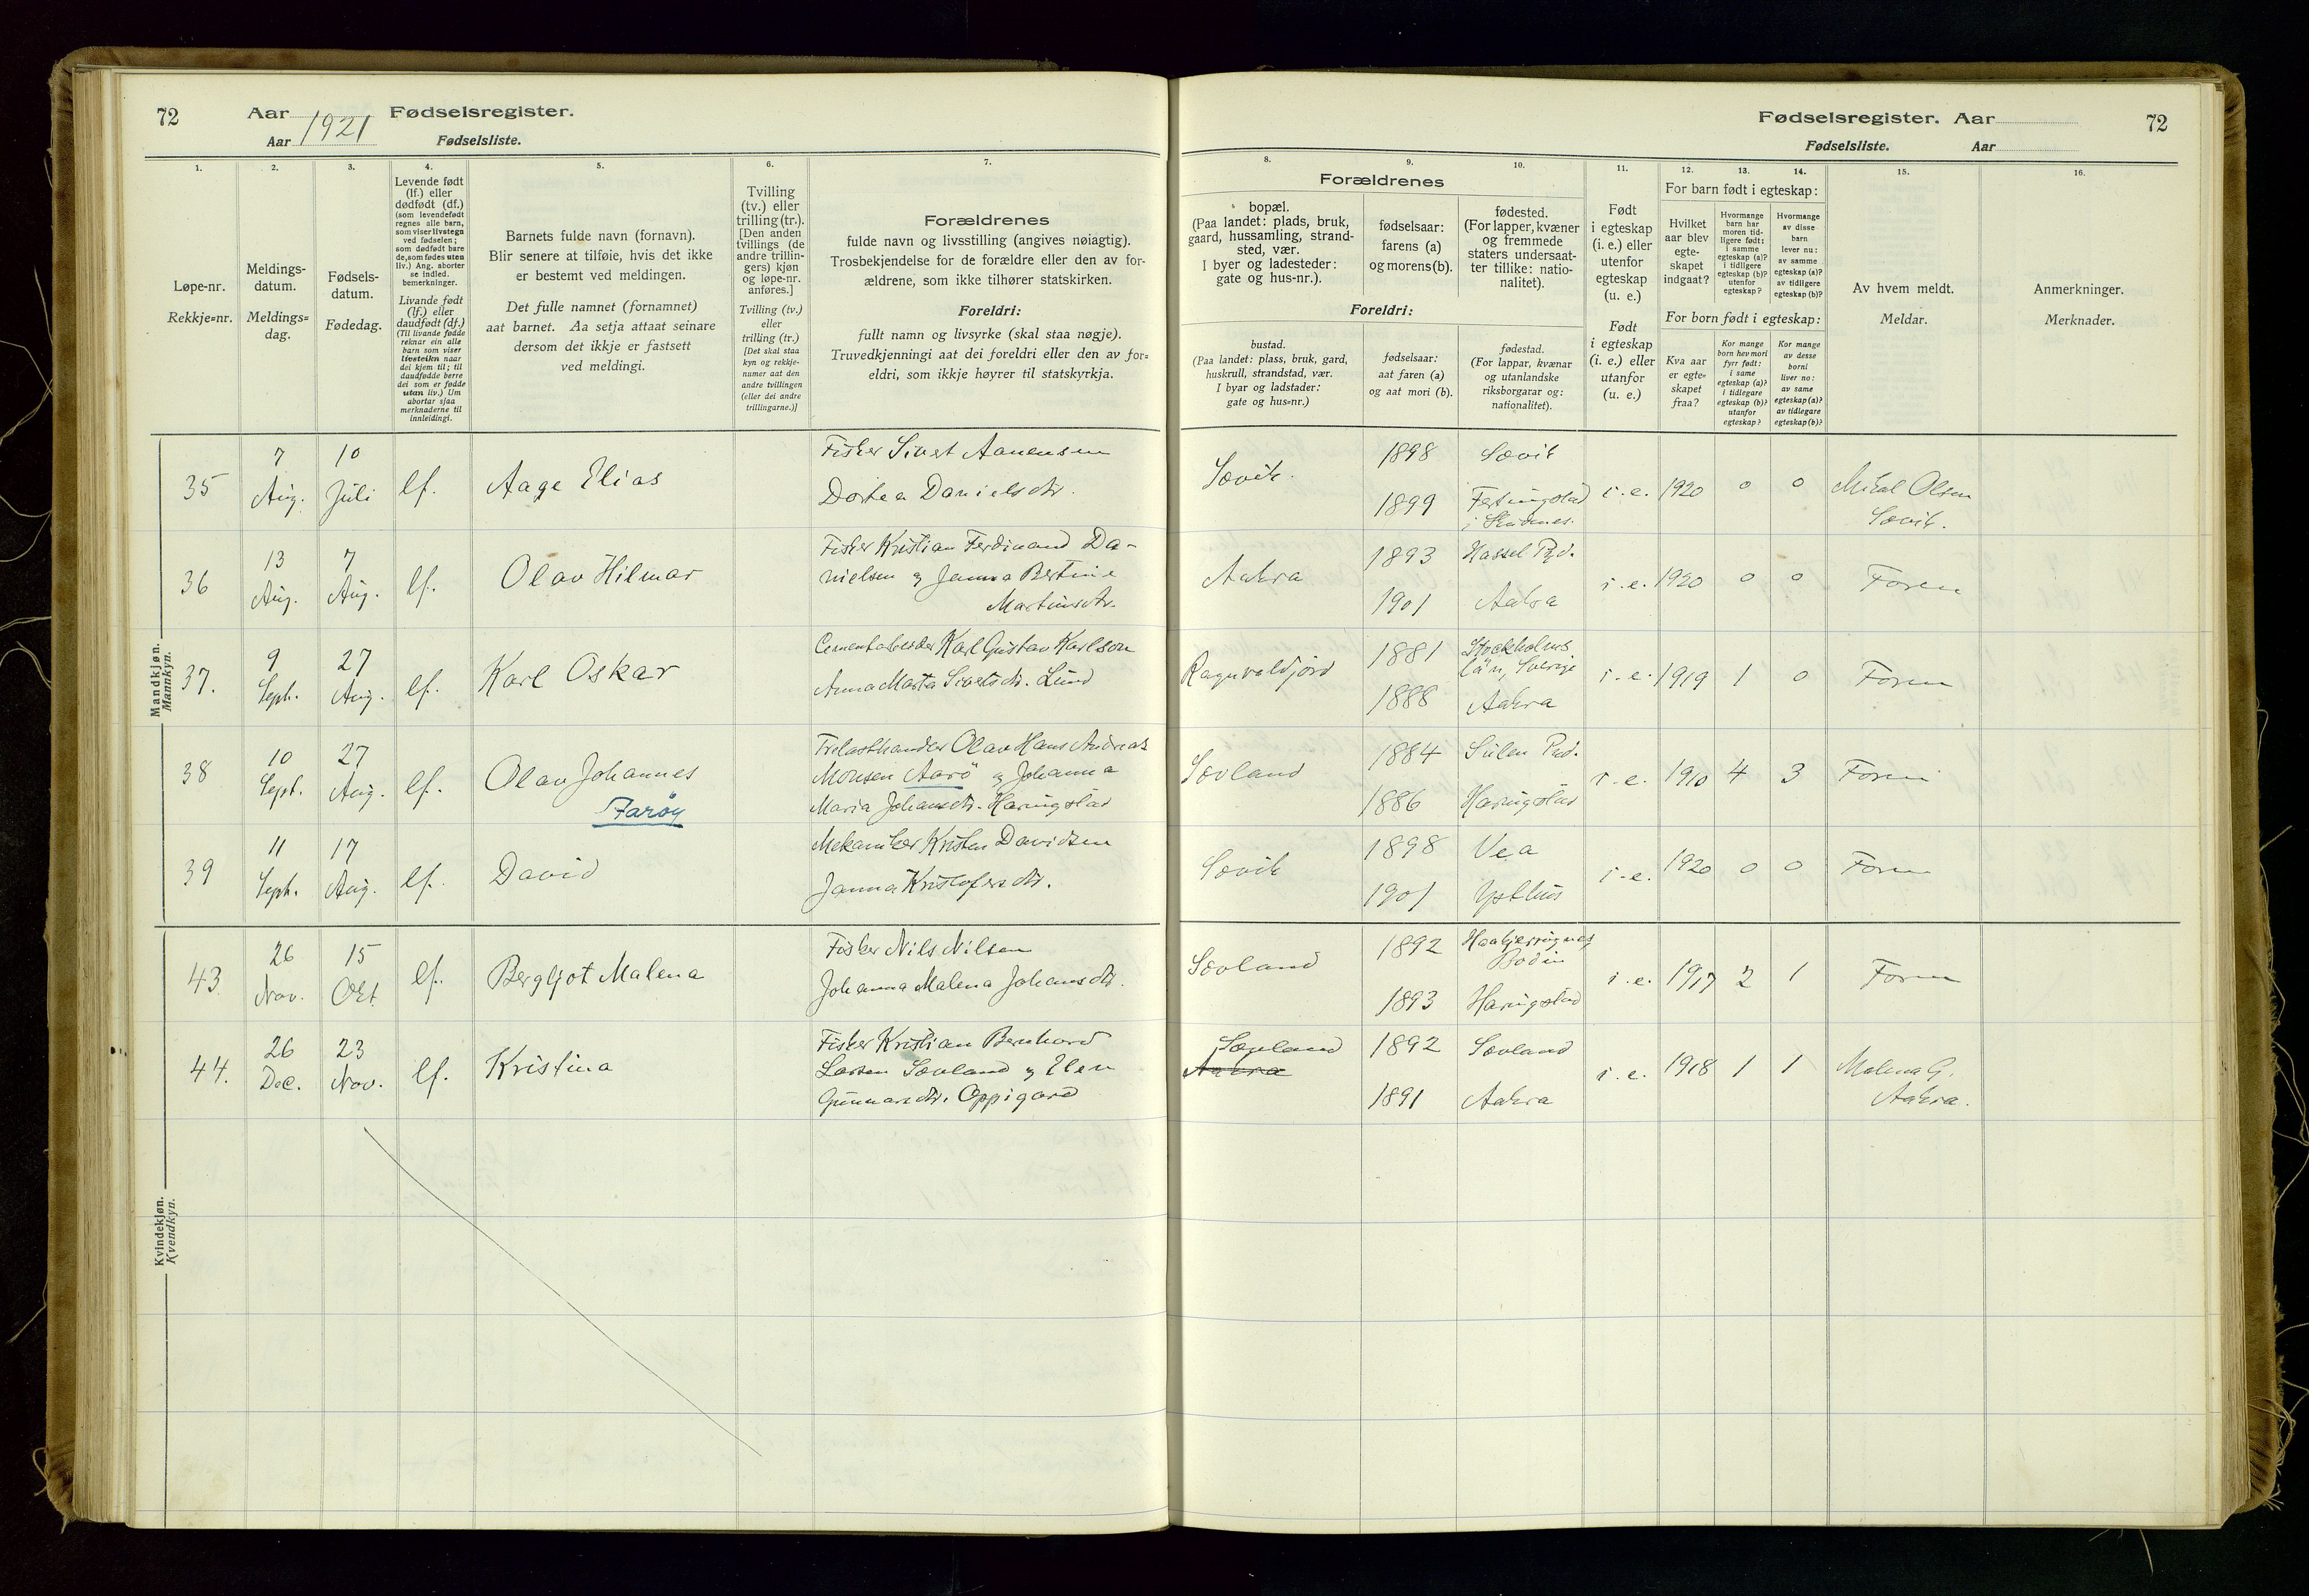 72
Aar 1921 Fødselsregister.
Aar Fødselsliste.
Fødselsregister. Aar
Fødselsliste. Aar
72
1.
Løpe-nr.
Rekkje=nr.
2.
Meldings-
datum.
Meldings=
dag.
3.
Fødsels-
datum.
Fødedag.
4.
Levende født
(lf.) eller
dødfødt (df.)
(som levendefødt
regnes alle barn,
som viser livstegn
ved fødselen;
som dødfødt bare
de, som fødes uten
liv.) Ang. aborter
se indled.
bemerkninger.
Livande født
(lf.) eller
daudfødt (df.)
(Til livande fødde
reknar ein alle
barn som viser
livsteikn naar
dei kjem til; til
daudfødde berre
dei som er fødde
utan liv.) Um
abortar sjaa
merknaderne til
innleidingi.
5.
Barnets fulde navn (fornavn).
Blir senere at tilføie, hvis det ikke
er bestemt ved meldingen.
Det fulle namnet (fornamnet)
aat barnet. Aa setja attaat seinare
dersom det ikkje er fastsett
ved meldingi.
6.
Tvilling
(tv.) eller
trilling (tr.).
[Den anden
tvillings (de
andre trillin-
gers) kjøn
og løpe-nr.
anføres.]
Tvilling (tv.)
eller
trilling (tr.)
[Det skal staa
kyn og rekkje-
numer aat den
andre tvillingen
(eller dei andre
trillingarne.)]
7.
Forældrenes
fulde navn og livsstilling (angives nøiagtig).
Trosbekjendelse for de forældre eller den av for-
ældrene, som ikke tilhører statskirken.
Foreldri:
fullt namn og livsyrke (skal staa nøgje).
Truvedkjenningi aat dei foreldri eller den av for=
eldri, som ikkje høyrer til statskyrkja.
Forældrenes
8.
bopæl.
(Paa landet: plads, bruk,
gaard, hussamling, strand-
sted, vær.
I byer og ladesteder:
gate og hus-nr.).
9.
fødselsaar:
farens (a)
og morens (b).
10.
fødested.
(For lapper, kvæner
og fremmede
staters undersaat-
ter tillike: natio-
nalitet).
Foreldri:
bustad.
(Paa landet: plass, bruk, gard,
huskrull, strandstad, vær.
I byar og ladstader:
gate og hus=nr.)
fødselsaar:
aat faren (a)
og aat mori (b).
fødestad.
(For lappar, kvænar
og utanlandske
riksborgarar og:
nationalitet).
11.
Født
i egteskap
(i. e.) eller
utenfor
egteskap
(u. e.)
Født
i egteskap
(i. e.) eller
utanfor
(u. e.)
12. 13. 14.
For barn født i egteskap:
Hvilket
aar blev
egte-
skapet
indgaat?
Hvormange
barn har
moren tid-
ligere født:
i samme
egteskap (a)?
i tidligere
egteskap (b)?
utenfor
egteskap?
Hvormange
av disse
barn
lever nu:
av samme
egteskap (a)?
av tidligere
egteskap (b)?
For born født i egteskap:
Kva aar
er egte=
skapet
fraa?
Kor mange
born hev mori
fyrr født:
i same
egteskap (a)?
i tidlegare
egteskap (b)?
utanfor
egteskap?
Kor mange
av desse
borni
liver no:
av same
egteskap (a)?
av tidlegare
egteskap (b)?
15.
Av hvem meldt.
Meldar.
16.
Anmerkninger.
Merknader.
Mandkjøn.
Mannkyn.
35 7 Aug. 10 Juli lf. Aage Elias
Fisker Sivert Aanensen
Dortea Danielsdtr.
Sævik. 1898 Sævik
1899 Ferkingstad
i Skudnes.
i.e. 1920 0 0 Mikal Olsen
Sævik.
36 13 Aug. 7 Aug. lf. Olav Hilmar
Fisker Kristian Ferdinand Da-
nielsen og Janna Bertine
Martinsdtr.
Aakra 1893 Hassel Pgd.
1901 Aakra
i.e. 1920 0 0 Faren
37. 9 Sept. 27 Aug. lf. Karl Oskar
Cementarbeider Karl Gustav Karlson
Anna Marta Sivertsdtr. Lund
Ragnvaldjord 1881 Stockholms
län, Sverige
1888 Aakra
i.e. 1919 1 0 Faren
38 10 Sept. 27 Aug. lf. Olav Johannes
Farøy
Trelasthandler Olav Hans Andreas
Monsen Aarö og Johanna
Maria Johansdtr. Haringstad
Sævland 1884 Sulen Pgd.
1886 Haringstad
i.e. 1910 4 3 Faren
39 11 Sept. 17 Aug. lf. David
Mekaniker Kristen Davidsen
Janna Kristofersdtr.
Sævik 1898 Vea
1901 Ysthus
i.e. 1920 0 0 Faren
Kvindekjøn.
Kvendkyn.
43 26 Nov. 15 Okt. lf. Bergljot Malena
Fisker Nils Nilsen
Johanna Malena Johansdtr.
Sævland 1892
Bodin
1893 Haringstad
i.e. 1917 2 1 Faren
44. 26 Dec. 23 Nov. lf. Kristina
Fisker Kristian Bernhard
Larsen Sævland og Elen
Gunnarsdtr. Oppigard
Sævland
Aakra
1892 Sævland
1891 Aakra
i.e. 1918 1 1 Malena G.
Aakra.